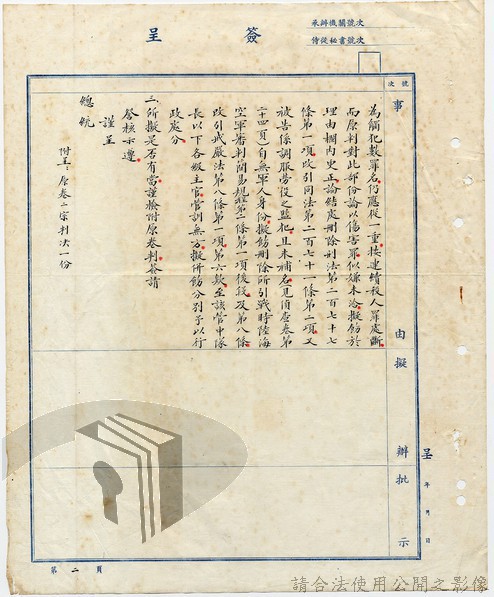 簽呈
承辦機關號次
侍從秘書號次
號次
事由擬辦批示
呈 年 月 日
為觸犯數罪名仍應從一重按連續殺人罪處斷
而原判對此部份論以傷害罪似嫌未洽擬飭於
理由欄內更正論結處刪除刑法第二百七十七
條第一項改引同法第二百七十一條第二項又
被告係調服勞役之監犯且未補名(見偵查卷第
二十四頁)自無軍人身份擬飭刪除所引戰時陸海
空軍審判簡易規程第二條第一項後段及第八條
改引戒嚴法第八條第一項第六款至該管中隊
長以下各級主官管訓無方擬併飭分別予以行
政處分
三所擬是否有當謹檢附原卷判簽請
鑒核示遵
謹呈
總統
附呈：原卷二宗判決一份
第二頁
請合法使用公開之影像